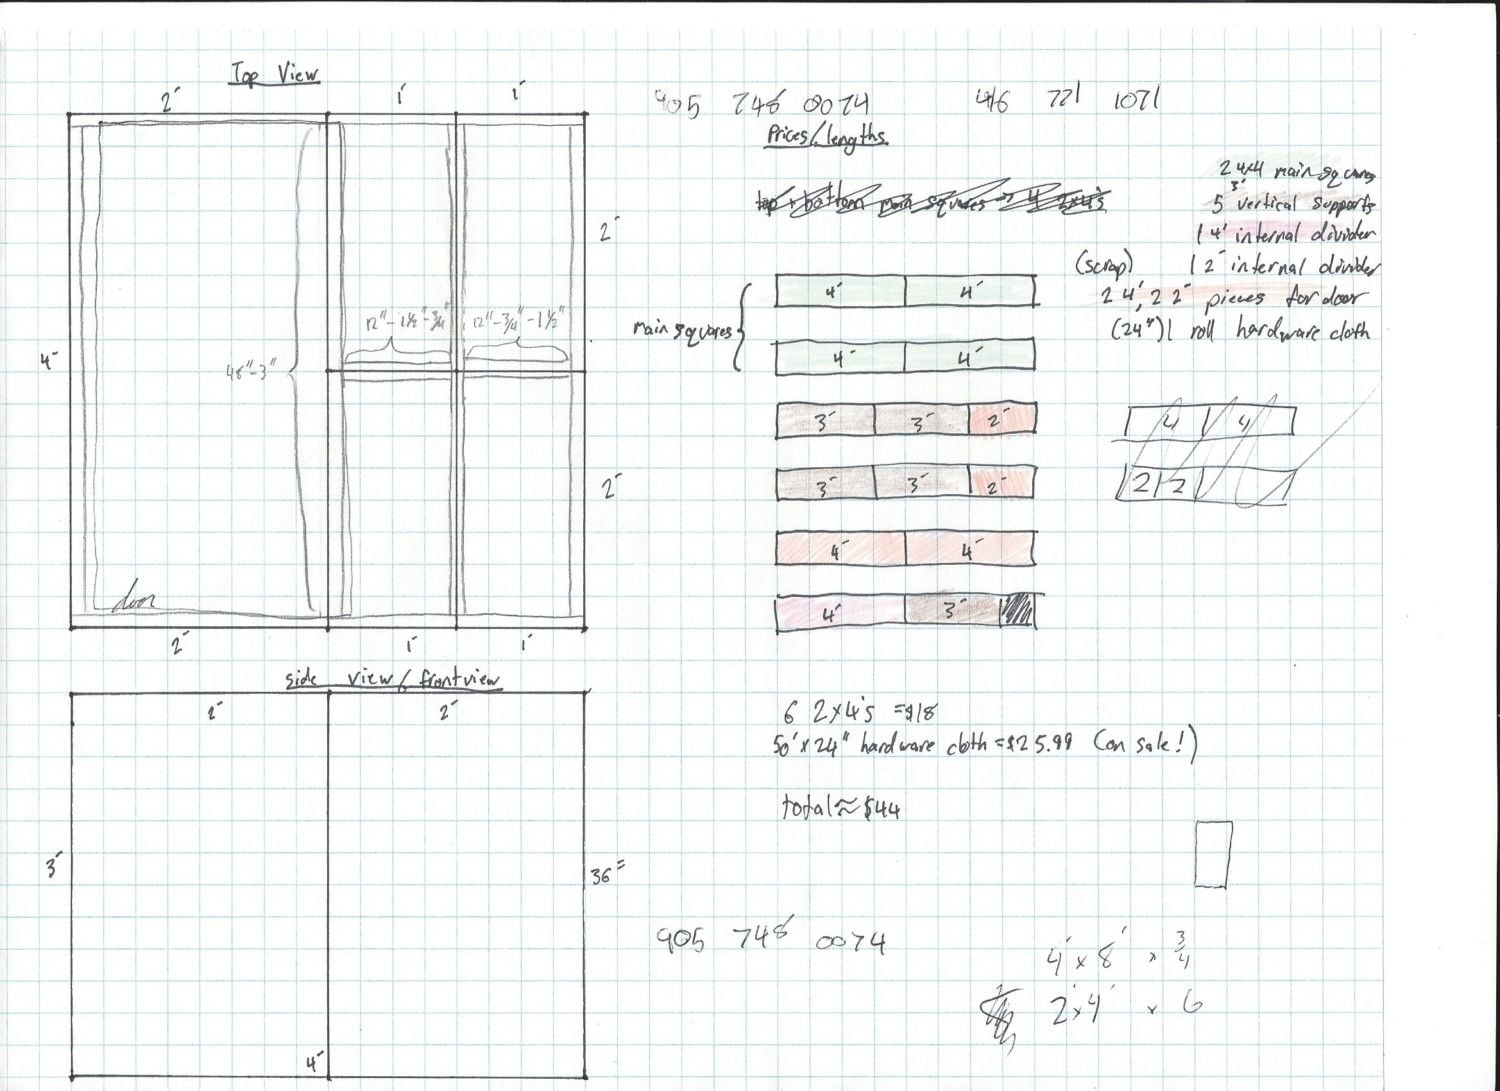 Top View
2' 1' 1'
905 748 0074
416 721 1071
Prices/lengths
top + bottom main squares → 4 2x4's
2 4x4 main squares
5 3' vertical supports
1 4' internal divider
(scrap) 1 2' internal divider
2 4', 2 2' pieces for door
(24") 1 roll hardware cloth
2'
12"-1½"-¾" 12"-¾"-1½"
4'
48"-3"
2'
door
2' 1' 1'
main squares
4' 4'
4' 4'
3' 3' 2'
3' 3' 2'
4' 4'
4' 3'
4 4
2 2
side view/frontview
2' 2'
3'
36"
4'
6 2x4's =$18
50'x24" hardware cloth =$25.99 (on sale!)
total≈$44
905 748 0074
4'x8' x 3/4
2'x4' x 6